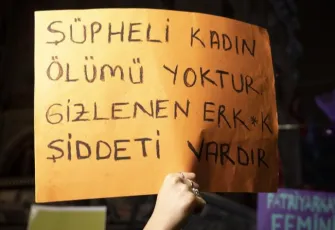 ŞÜPHELİ KADIN
ÖLÜMÜ YOKTUR
GİZLENEN ERK*K
ŞİDDETİ VARDIR
PATRİYARKA
FEMİNİ